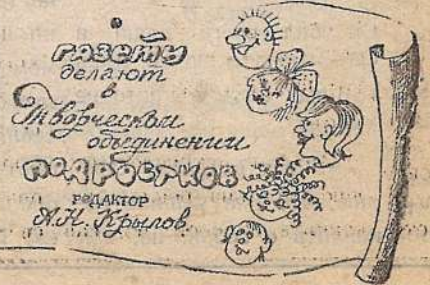 газеты
делают
в
Творческом
объединении
подростков
редактор
А.Н. Крылов.